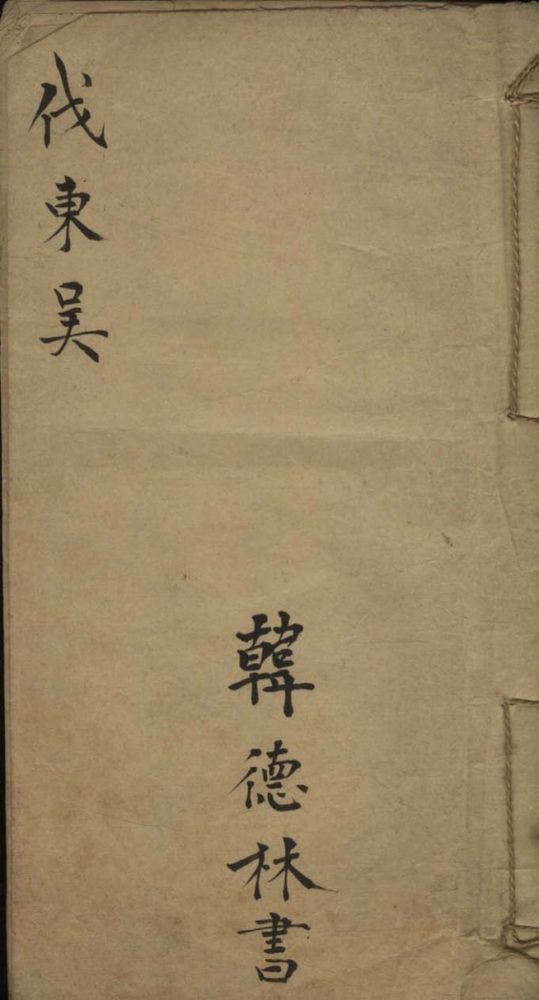 伐東吴
韓德林書